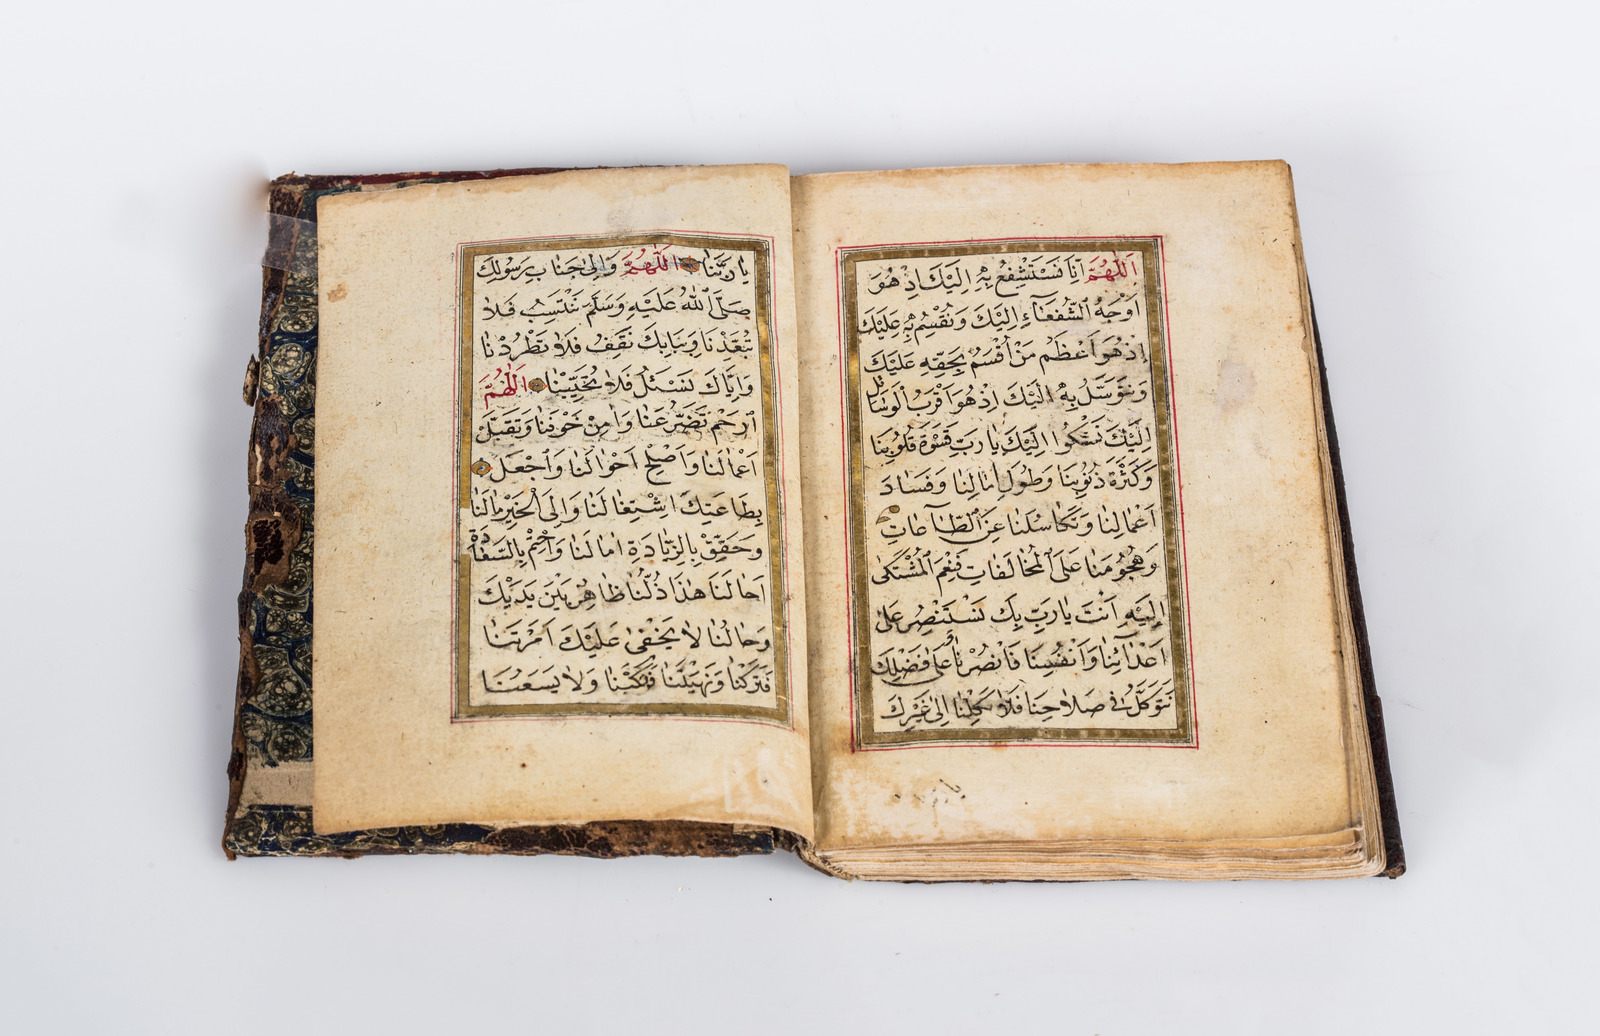 اَللّٰهُمَّ اِنَّا نَسْتَشْفِعُ بِهٖ اِلَيْكَ اِذْ هُوَ
اَوْجَهُ الشُّفَعَآءِ اِلَيْكَ وَنُقْسِمُ بِهٖ عَلَيْكَ
اِذْ هُوَ اَعْظَمُ مَنْ اُقْسِمُ بِحَقِّهٖ عَلَيْكَ
وَنَتَوَسَّلُ بِهٖ اِلَيْكَ اِذْ هُوَ اَقْرَبُ الْوَسَائِلِ
اِلَيْكَ نَشْكُوا اِلَيْكَ يَا رَبِّ قَسْوَةَ قُلُوبِنَا
وَكَثْرَةَ ذُنُوبِنَا وَطُولَ اٰمَالِنَا وَفَسَادَ
اَعْمَالِنَا وَتَكَاسُلَنَا عَنِ الطَّاعَاتِ
وَهُجُومَنَا عَلَى الْمُخَالَفَاتِ فَنِعْمَ الْمُشْتَكٰى
اِلَيْهِ اَنْتَ يَا رَبِّ بِكَ نَسْتَنْصِرُ عَلٰى
اَعْدَآئِنَا وَاَنْفُسِنَا فَانْصُرْنَا وَعَلٰى فَضْلِكَ
نَتَوَكَّلُ فِى صَلَاحِنَا فَلَا تَكِلْنَا اِلٰى غَيْرِكَ
يَا رَبَّنَا اَللّٰهُمَّ وَاِلٰى جَنَابِ رَسُولِكَ
صَلَّى اللّٰهُ عَلَيْهِ وَسَلَّمَ نَنْتَسِبُ فَلَا
تُبَعِّدْنَا وَبِبَابِكَ نَقِفُ فَلَا تَطْرُدْنَا
وَاِيَّاكَ نَسْئَلُ فَلَا تُخَيِّبْنَا اَللّٰهُمَّ
ارْحَمْ تَضَرُّعَنَا وَاٰمِنْ خَوْفَنَا وَتَقَبَّلْ
اَعْمَالَنَا وَاَصْلِحْ اَحْوَالَنَا وَاجْعَلْ
بِطَاعَتِكَ اشْتِغَالَنَا وَاِلَى الْخَيْرِ مَاٰلَنَا
وَحَقِّقْ بِالزِّيَادَةِ اٰمَالَنَا وَاخْتِمْ بِالسَّعَادَةِ
اٰجَالَنَا هٰذَا ذُلُّنَا ظَاهِرٌ بَيْنَ يَدَيْكَ
وَحَالُنَا لَا يَخْفٰى عَلَيْكَ اَمَرْتَنَا
فَتَرَكْنَا وَنَهَيْتَنَا فَارْتَكَبْنَا وَلَا يَسَعُنَا